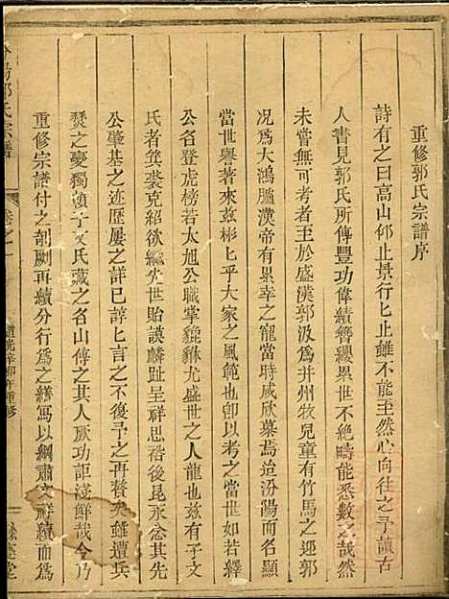 重修郭氏宗譜序
詩有之曰高山仰止景行行止雖不能至然心向往之予讀古
人書見郭氏所傳豐功偉績簪纓累世不絕時能悉數之哉然
未嘗無可考者至於盛漢郭汲為并州牧兒童有竹馬之迎郭
况為大鴻臚漢帝有累幸之寵當時咸欣慕焉迨汾陽而名顯
當世譽著來兹彬匕乎大家之風範也卽以考之當世如若釋
公名登虎榜若太旭公職掌貔貅尤盛世之人龍也兹有子文
氏者箕裘克紹欲編先世貽謨麟趾呈祥思啓後昆永念其先
公肇基之迹歷屢之詳已諄匕言之不復予之再贅矣雖遭兵
燹之變獨賴子文氏藏之名山傳之其人厥功詎淺鮮哉今乃
重修宗譜付之剞劂再續分行為之繕寫以綱肅文祥續而為
郭氏宗譜
卷之一